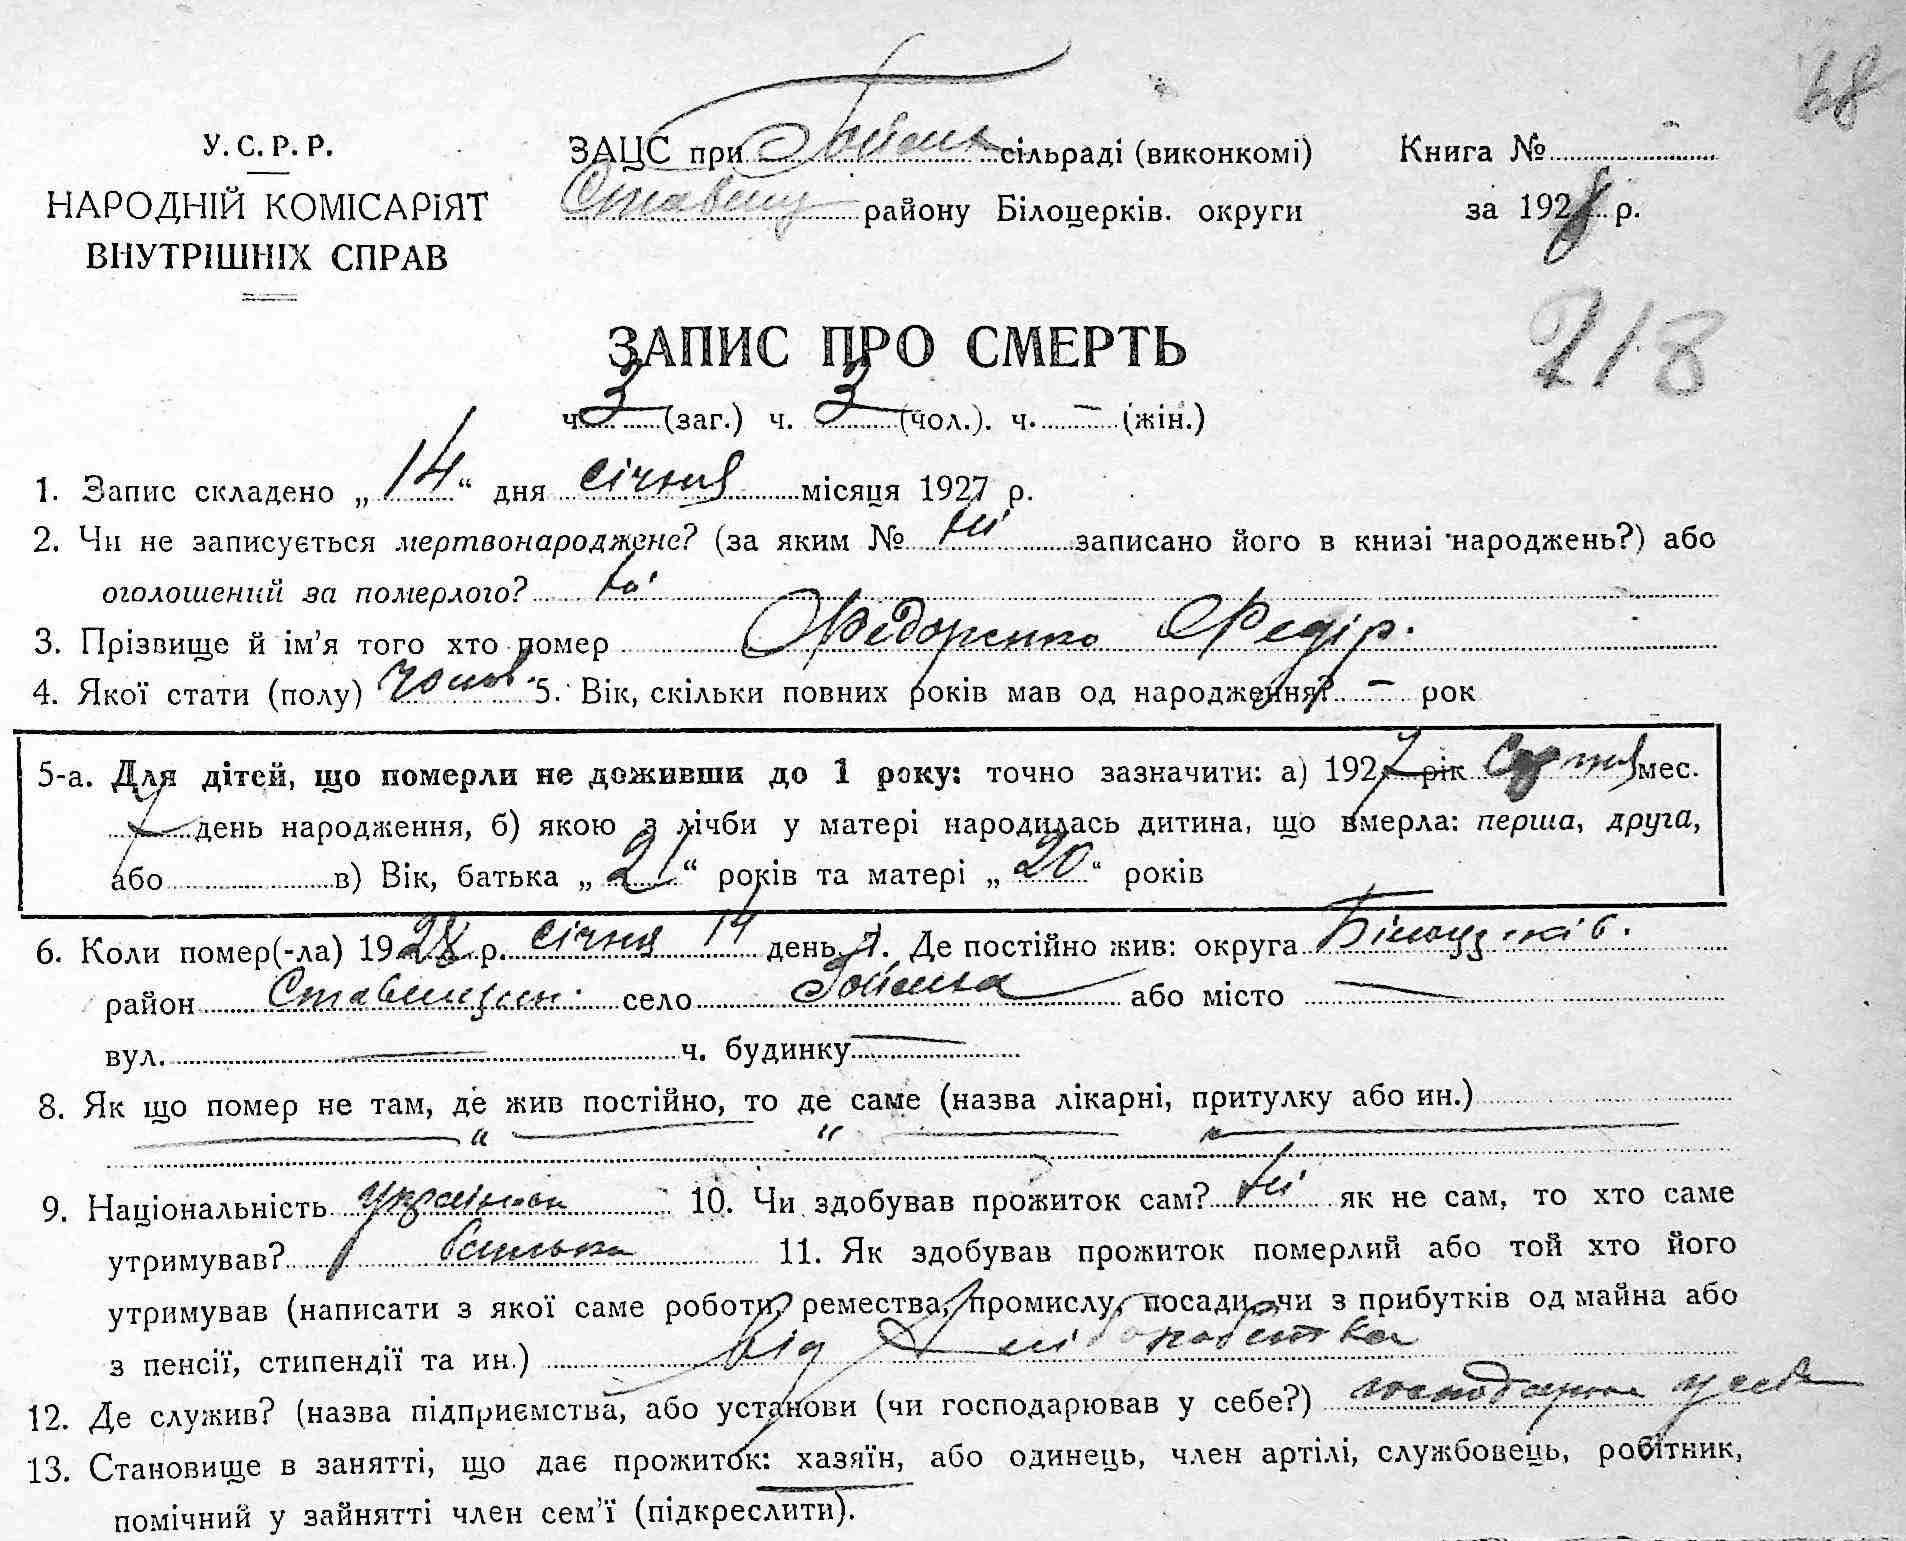 68
У. С. Р. Р.
НАРОДНІЙ КОМІСАРІЯТ
ВНУТРІШНІХ СПРАВ
ЗАЦС при сільраді (виконкомі)
Ставищ району Білоцерків. округи
Книга №
за 1928 р.
218
ЗАПИС ПРО СМЕРТЬ
ч. 3 (заг.) ч. 3 (чол.). ч. — (жін.)
1. Запис складено „ 14 “ дня січня місяця 1927 р.
2. Чи не записується мертвонароджене? (за яким № ні записано його в книзі народжень?) або
оголошений за померлого? ні
3. Прізвище й ім'я того хто помер Федоренко Федір.
4. Якої стати (полу) чолов. 5. Вік, скільки повних років мав од народження? — рок
5-а. Для дітей, що померли не доживши до 1 року: точно зазначити: а) 1927 рік мес.
7 день народження, б) якою з лічби у матері народилась дитина, що вмерла: перша, друга,
або в) Вік, батька „ 21 “ років та матері „ 20 “ років
6. Коли помер(-ла) 1928 р. січня 14 день 7. Де постійно жив: округа Білоцерків.
район Ставищин. село або місто —
вул. — ч. будинку —
8. Як що помер не там, де жив постійно, то де саме (назва лікарні, притулку або ин.)
— " — " — —
9. Національність українец 10. Чи здобував прожиток сам? ні як не сам, то хто саме
утримував? батько 11. Як здобував прожиток померлий або той хто його
утримував (написати з якої саме роботи, ремества, промислу, посади, чи з прибутків од майна або
з пенсії, стипендії та ин.) від хліборобства
12. Де служив? (назва підприємства, або установи (чи господарював у себе?) господарював у себе
13. Становище в занятті, що дає прожиток: хазяїн, або одинець, член артілі, службовець, робітник,
помічний у зайнятті член сем'ї (підкреслити).